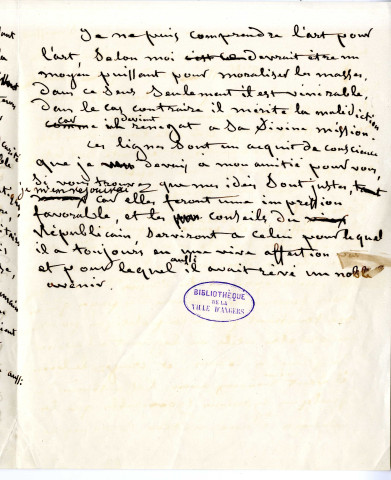 Je ne puis comprendre l'art pour
l'art, Selon moi c'est ce devrait être un
moyen puissant pour moraliser les masses,
dans ce Sens Seulement il est vénérable,
dans le cas contraire il mérite la malédiction
car devient
comme il renegat a Sa Divine mission.
Ces lignes Sont un acquit de conscience
que je devais a mon amitié pour vous,
Si vous trouvez que mes idés Sont justes, tant
je m'en rejouirai
car elles feront une impression
favorable, et les conseils du
républicain, Serviront a celui pour lequel
il a toujours eu une vive affection
aussi
et pour lequel il avait rêvé un noble
avenir.
BIBLIOTHÈQUE
DE LA
VILLE D'ANGERS